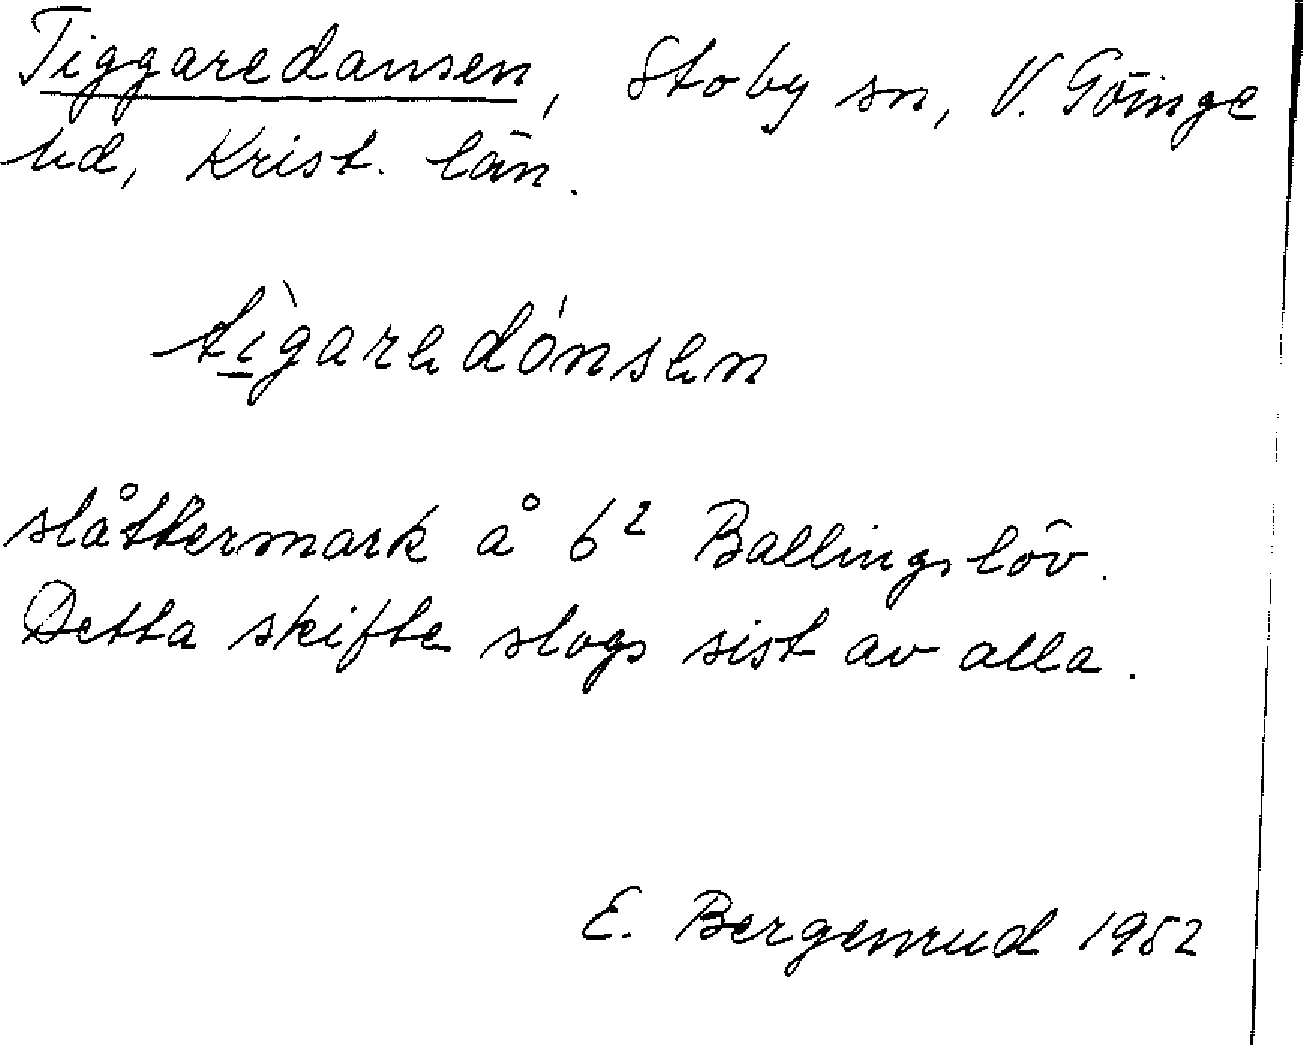 Tiggaredansen, Stoby sn, V. Göinge
hd, Krist. län.
slåttermark å 6² Ballingslöv.
Detta skifte slogs sist av alla.
E. Bergenrud 1952